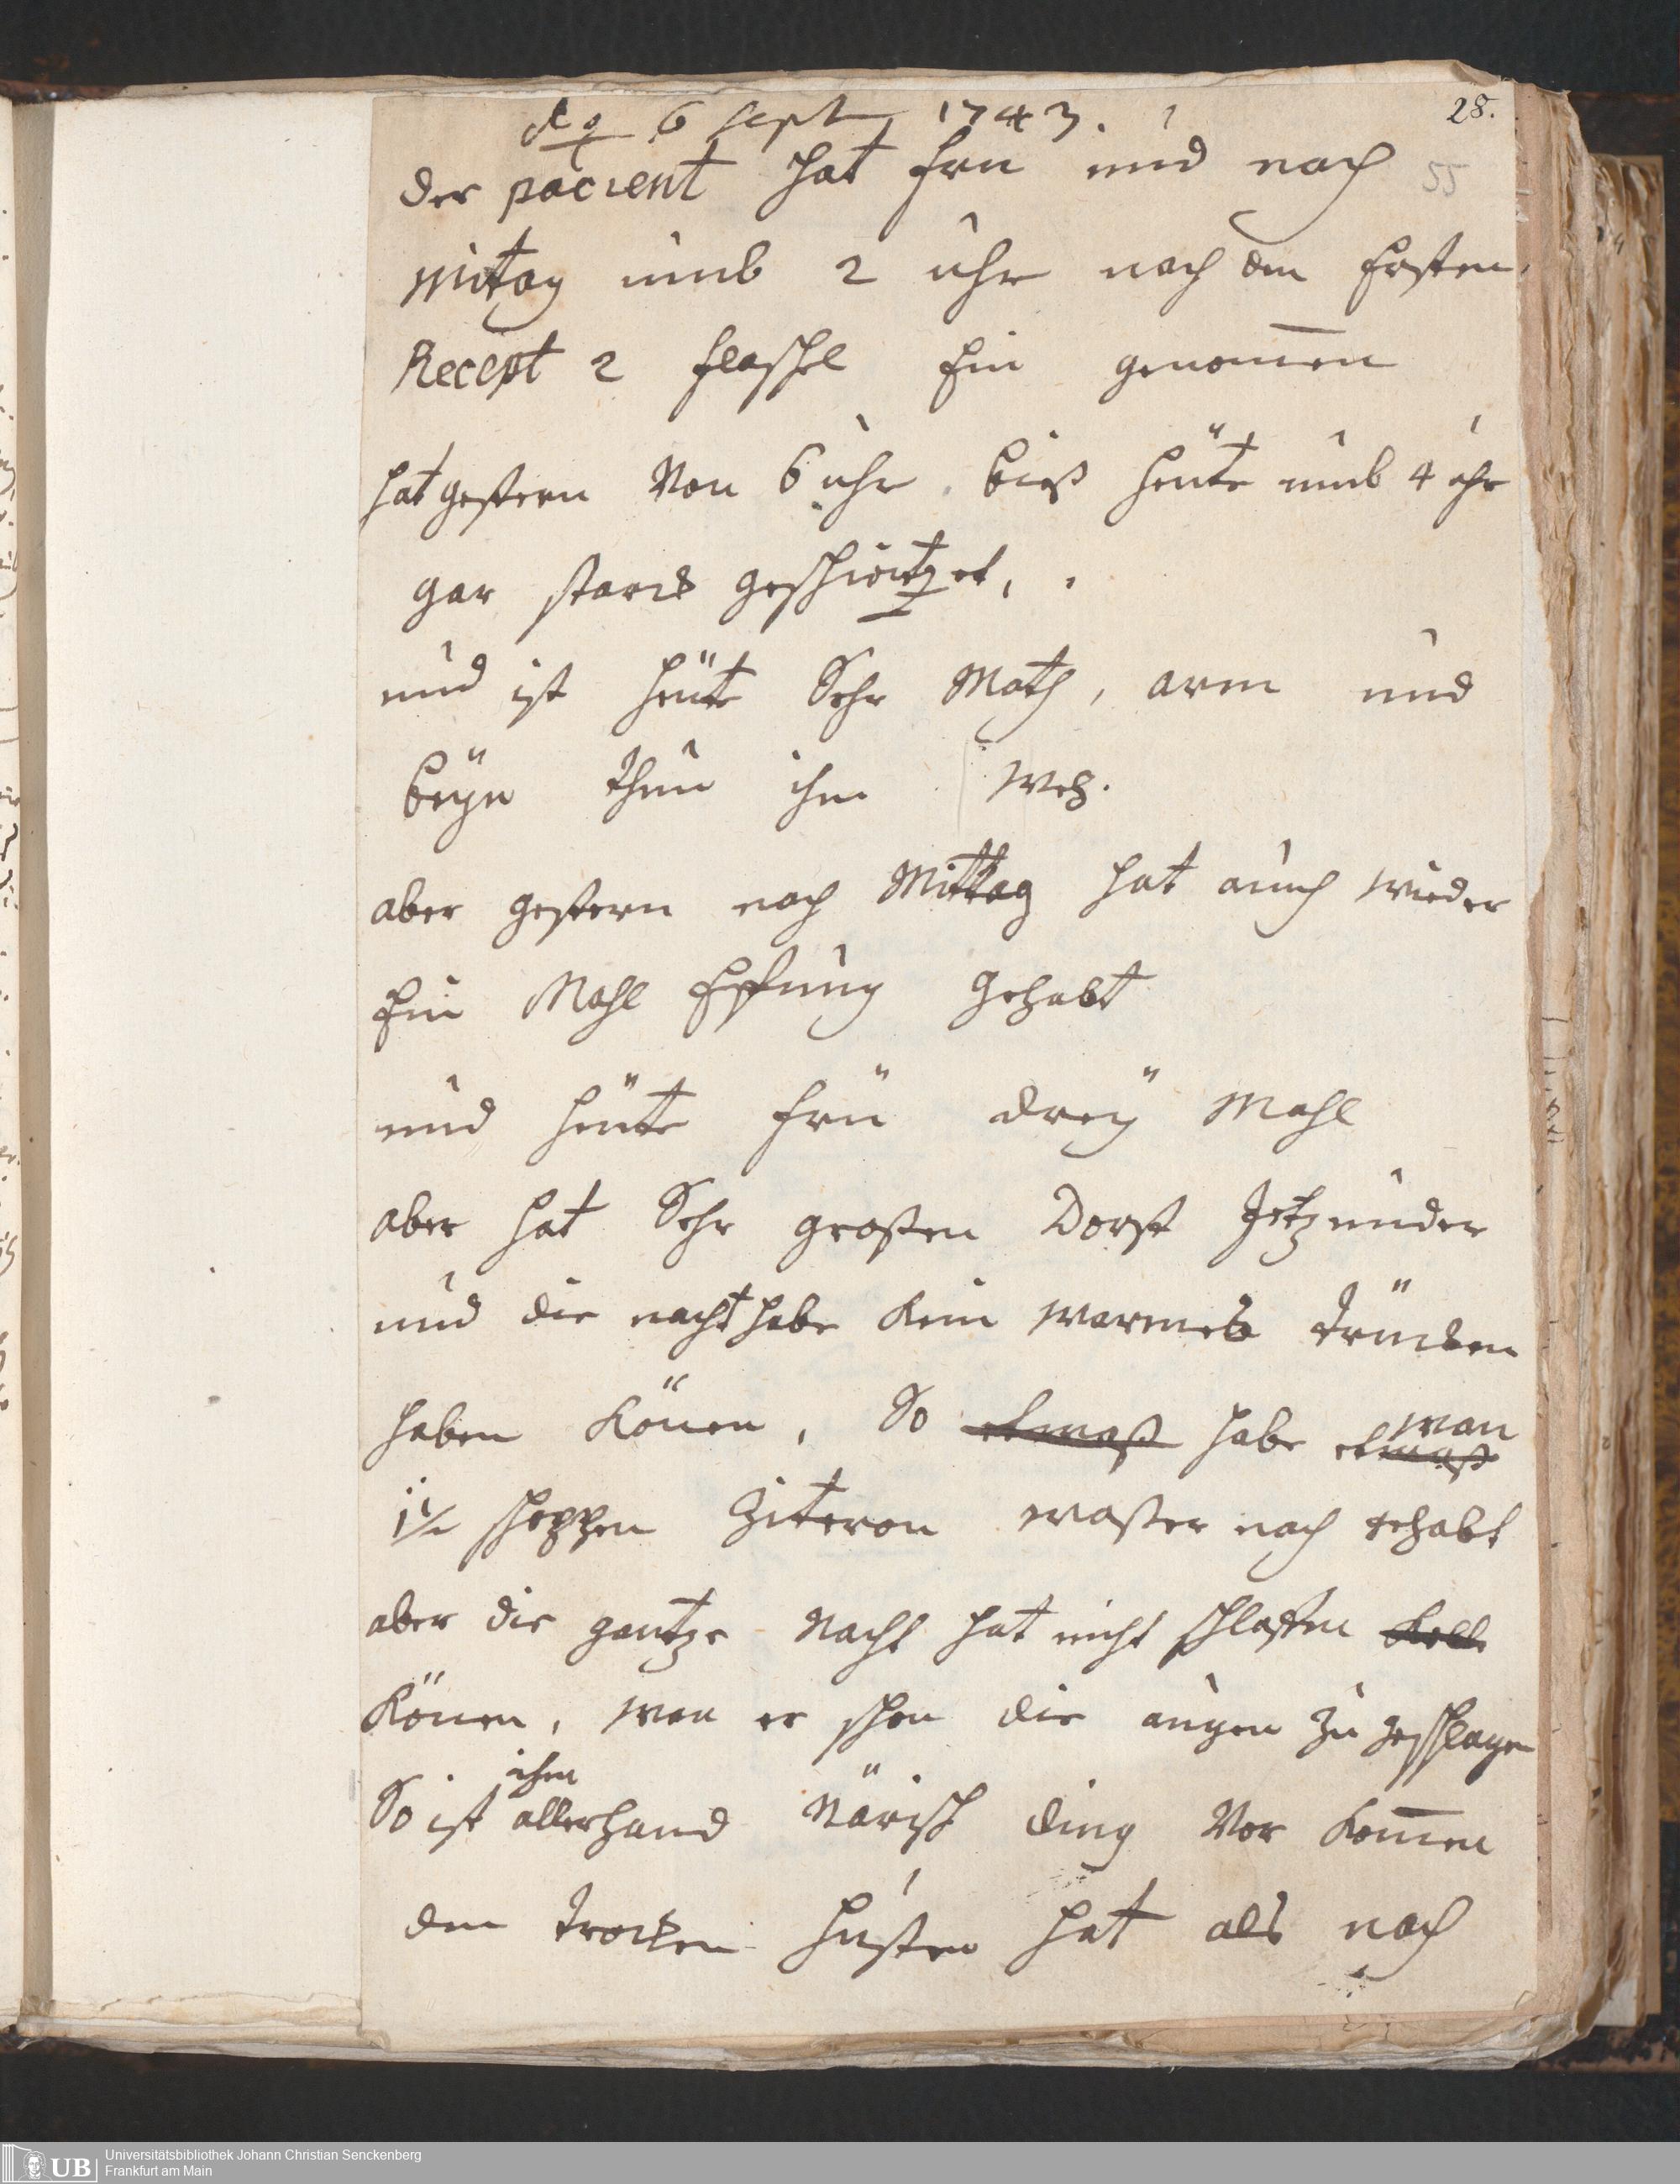 28.
d. 6 sept 1743.
55
der pacient hat fru und nach
mitag umb 2 uhr nach dem Ersten
Recept 2 flaschl Ein genom̅en
hat gestern Von 6 uhr biß heüte umb 4 uhr
gar starck geschwitzet,
und ist heüte Sehr Math, arm und
beÿn thun ihm weh.
aber gestern nach Mittag hat auch wieder
Ein Mahl Efnung gehabt
und heüte frü dreÿ Mahl
aber hat Sehr grosten Dorst Jetzunder
und die nacht habe kein warmes trüncken
haben könen, So etwaß habe etwaß wan
1½ schoppen Ziteron wasser nach gehabt
aber die gantze Nacht hat nicht schlaffen
könen, wan er schon die augen zu geschlagen
So ist ihm allerhand Närisch ding Vor kom̅en
den trocken husten hat als noch
UB Universitätsbibliothek Johann Christian Senckenberg
Frankfurt am Main